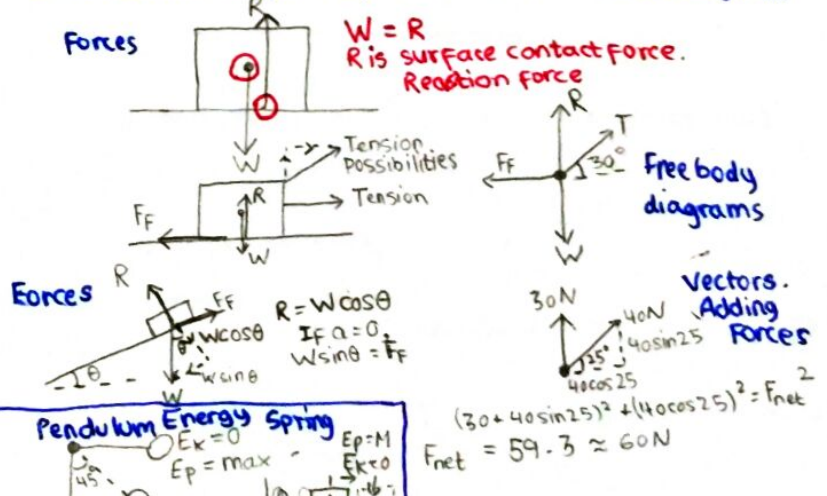 Forces
R
W = R
R is surface contact force.
Reaction force
W
Tension
possibilities
Tension
R
FF
W
R
T
FF
30°
W
Free body
diagrams
Forces
R
FF
Wcosθ
θ
θ
Wsinθ
W
R = Wcosθ
If a = 0,
Wsinθ = FF
Vectors.
Adding
Forces
30N
40N
40sin25
25°
40cos25
(30 + 40sin25)² + (40cos25)² = Fnet²
Fnet = 59.3 ≈ 60N
Pendulum Energy Spring
Ek = 0
Ep = max
45°
Ep = M
Ek = 0